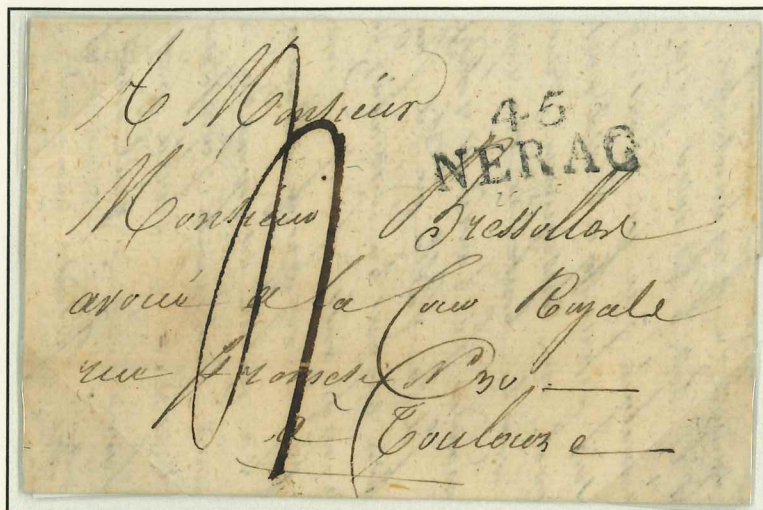 A Monsieur
45
NERAC
Monsieur
avoué a la Cour Royale
rue No 30
a Toulouse